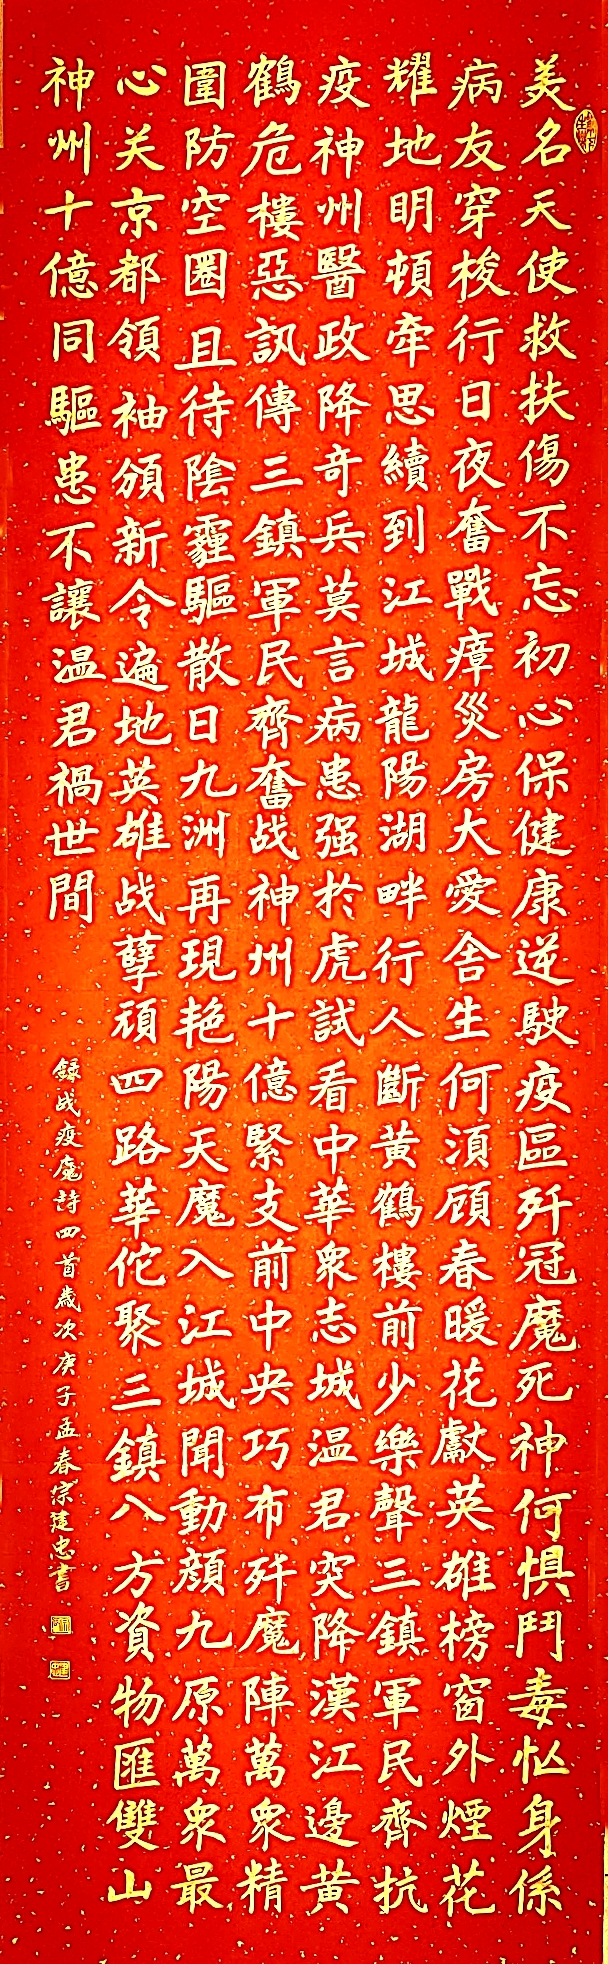 美名天使救扶傷不忘初心保健康逆駛疫區歼冠魔死神何惧鬥毒忙身係
病友穿梭行日夜奮戰瘴災房大愛舍生何須顾春暖花獻英雄榜窗外煙花
耀地明頓牵思續到江城龍陽湖畔行人斷黄鶴樓前少樂聲三鎮軍民齊抗
疫神州醫政降奇兵莫言病患强於虎試看中華衆志城温君突降漢江邊黄
鶴危樓惡訊傳三鎮軍民齊奮战神州十億緊支前中央巧布歼魔陣萬衆精
圍防空圈且待陰霾驅散日九洲再現艳陽天魔入江城聞動顔九原萬衆最
心关京都領袖頒新令遍地英雄战孽頑四路華佗聚三鎮八方資物匯雙山
神州十億同驅患不讓温君禍世間
録战疫魔詩四首歲次庚子孟春宗建忠書